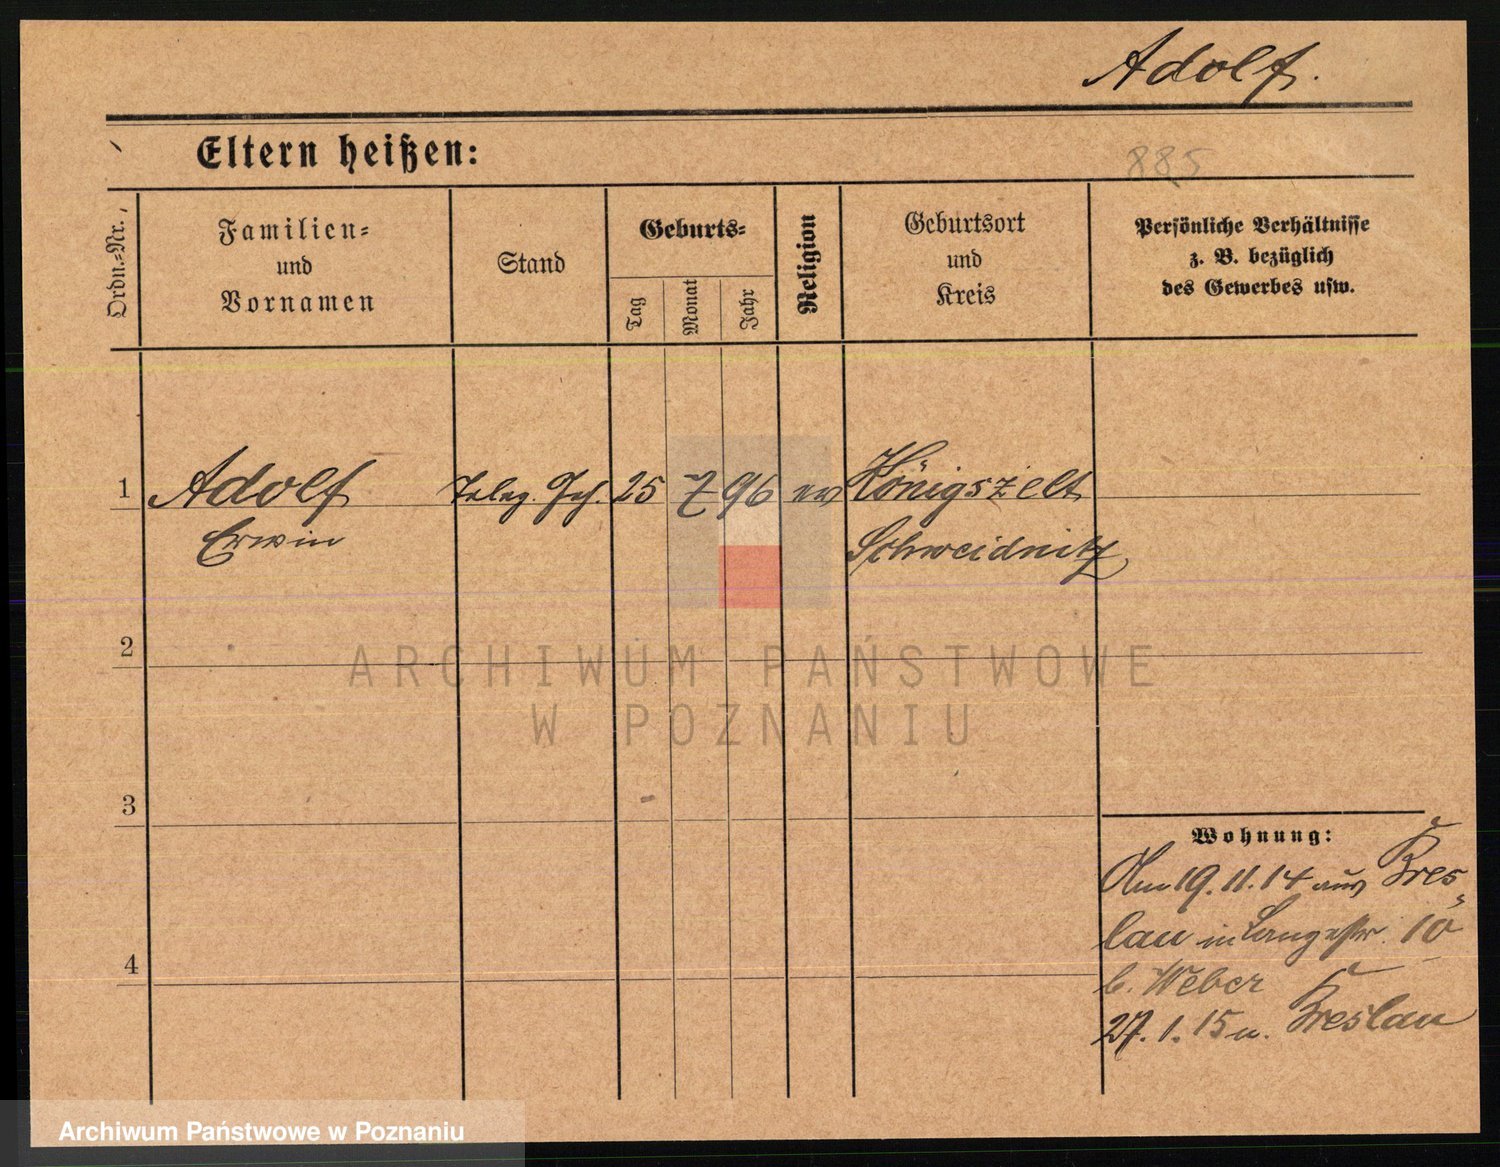 Adolf.
Eltern heißen:
885
Ordn.-Nr.
Familien-
und
Vornamen
Stand
Geburts-
Tag
Monat
Jahr
Religion
Geburtsort
und
Kreis
Persönliche Verhältnisse
z. B. bezüglich
des Gewerbes usw.
1
Adolf
Erwin
Teleg. Geh.
25
7
96
ev
Königszelt
Schweidnitz
2
ARCHIWUM PAŃSTWOWE
W POZNANIU
3
4
Wohnung:
Am 19. 11. 14 aus Bres-
lau in Langestr. 10
b. Weber
27. 1. 15 n. Breslau
Archiwum Państwowe w Poznaniu